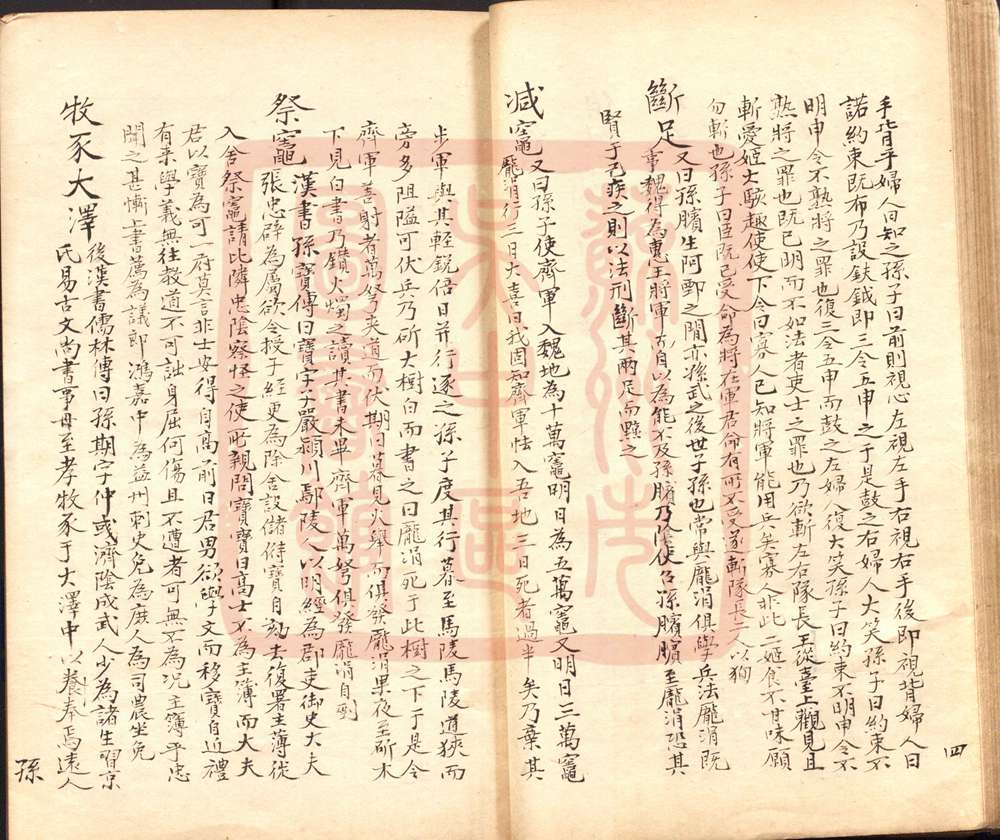 四
手背乎婦人曰知之孫子曰前則視心左視左手右視右手後即視背婦人曰
諾約束既布乃設鈇鉞即三令五申之于是鼓之右婦人大笑孫子曰約束不
明申令不熟將之罪也復三令五申而鼓之左婦人復大笑孫子曰約束不明申令不
熟將之罪也既已明而不如法者吏士之罪也乃欲斬左右隊長王從臺上觀見且
斬愛姬大駭趣使使下令曰寡人已知將軍能用兵矣寡人非此二姬食不甘味願
勿斬也孫子曰臣既已受命為將在軍君命有所不受遂斬隊長二人以狥
斷足 又曰孫臏生阿鄄之間亦孫武之後世子孫也常與龐涓俱學兵法龐涓既
事魏得為惠王將軍而自以為能不及孫臏乃陰使召孫臏臏至龐涓恐其
賢于己疾之則以法刑斷其兩足而黥之
減竈 又曰孫子使齊軍入魏地為十萬竈明日為五萬竈又明日三萬竈
龐涓行三日大喜曰我固知齊軍怯入吾地三日死者過半矣乃棄其
步軍與其輕銳倍日并行逐之孫子度其行暮至馬陵馬陵道狹而
旁多阻隘可伏兵乃斫大樹白而書之曰龐涓死于此樹之下于是令
齊軍善射者萬弩夾道而伏期曰暮見火舉而俱發龐涓果夜至斫木
下見白書乃鑽火燭之讀其書未畢齊軍萬弩俱發龐涓自剄
祭竈 漢書孫寶傳曰寶字子嚴潁川鄢陵人以明經為郡吏御史大夫
張忠辟為屬欲令授子經更為除舍設儲偫寶自劾去復署主薄從
入舍祭竈請比隣忠陰察怪之使所親問寶寶曰高士不為主簿而大夫
君以寶為可一府莫言非士安得自高前日君男欲學文而移寶自近禮
有來學義無往教道不可詘身屈何傷且不遭者可無不為况主簿乎忠
聞之甚慚上書薦為議郎鴻嘉中為益州刺史免為庶人為司農坐免
牧豕大澤 後漢書儒林傳曰孫期字仲或濟陰成武人少為諸生習京
氏易古文尚書事母至孝牧豕于大澤中以養奉焉遠人
孫